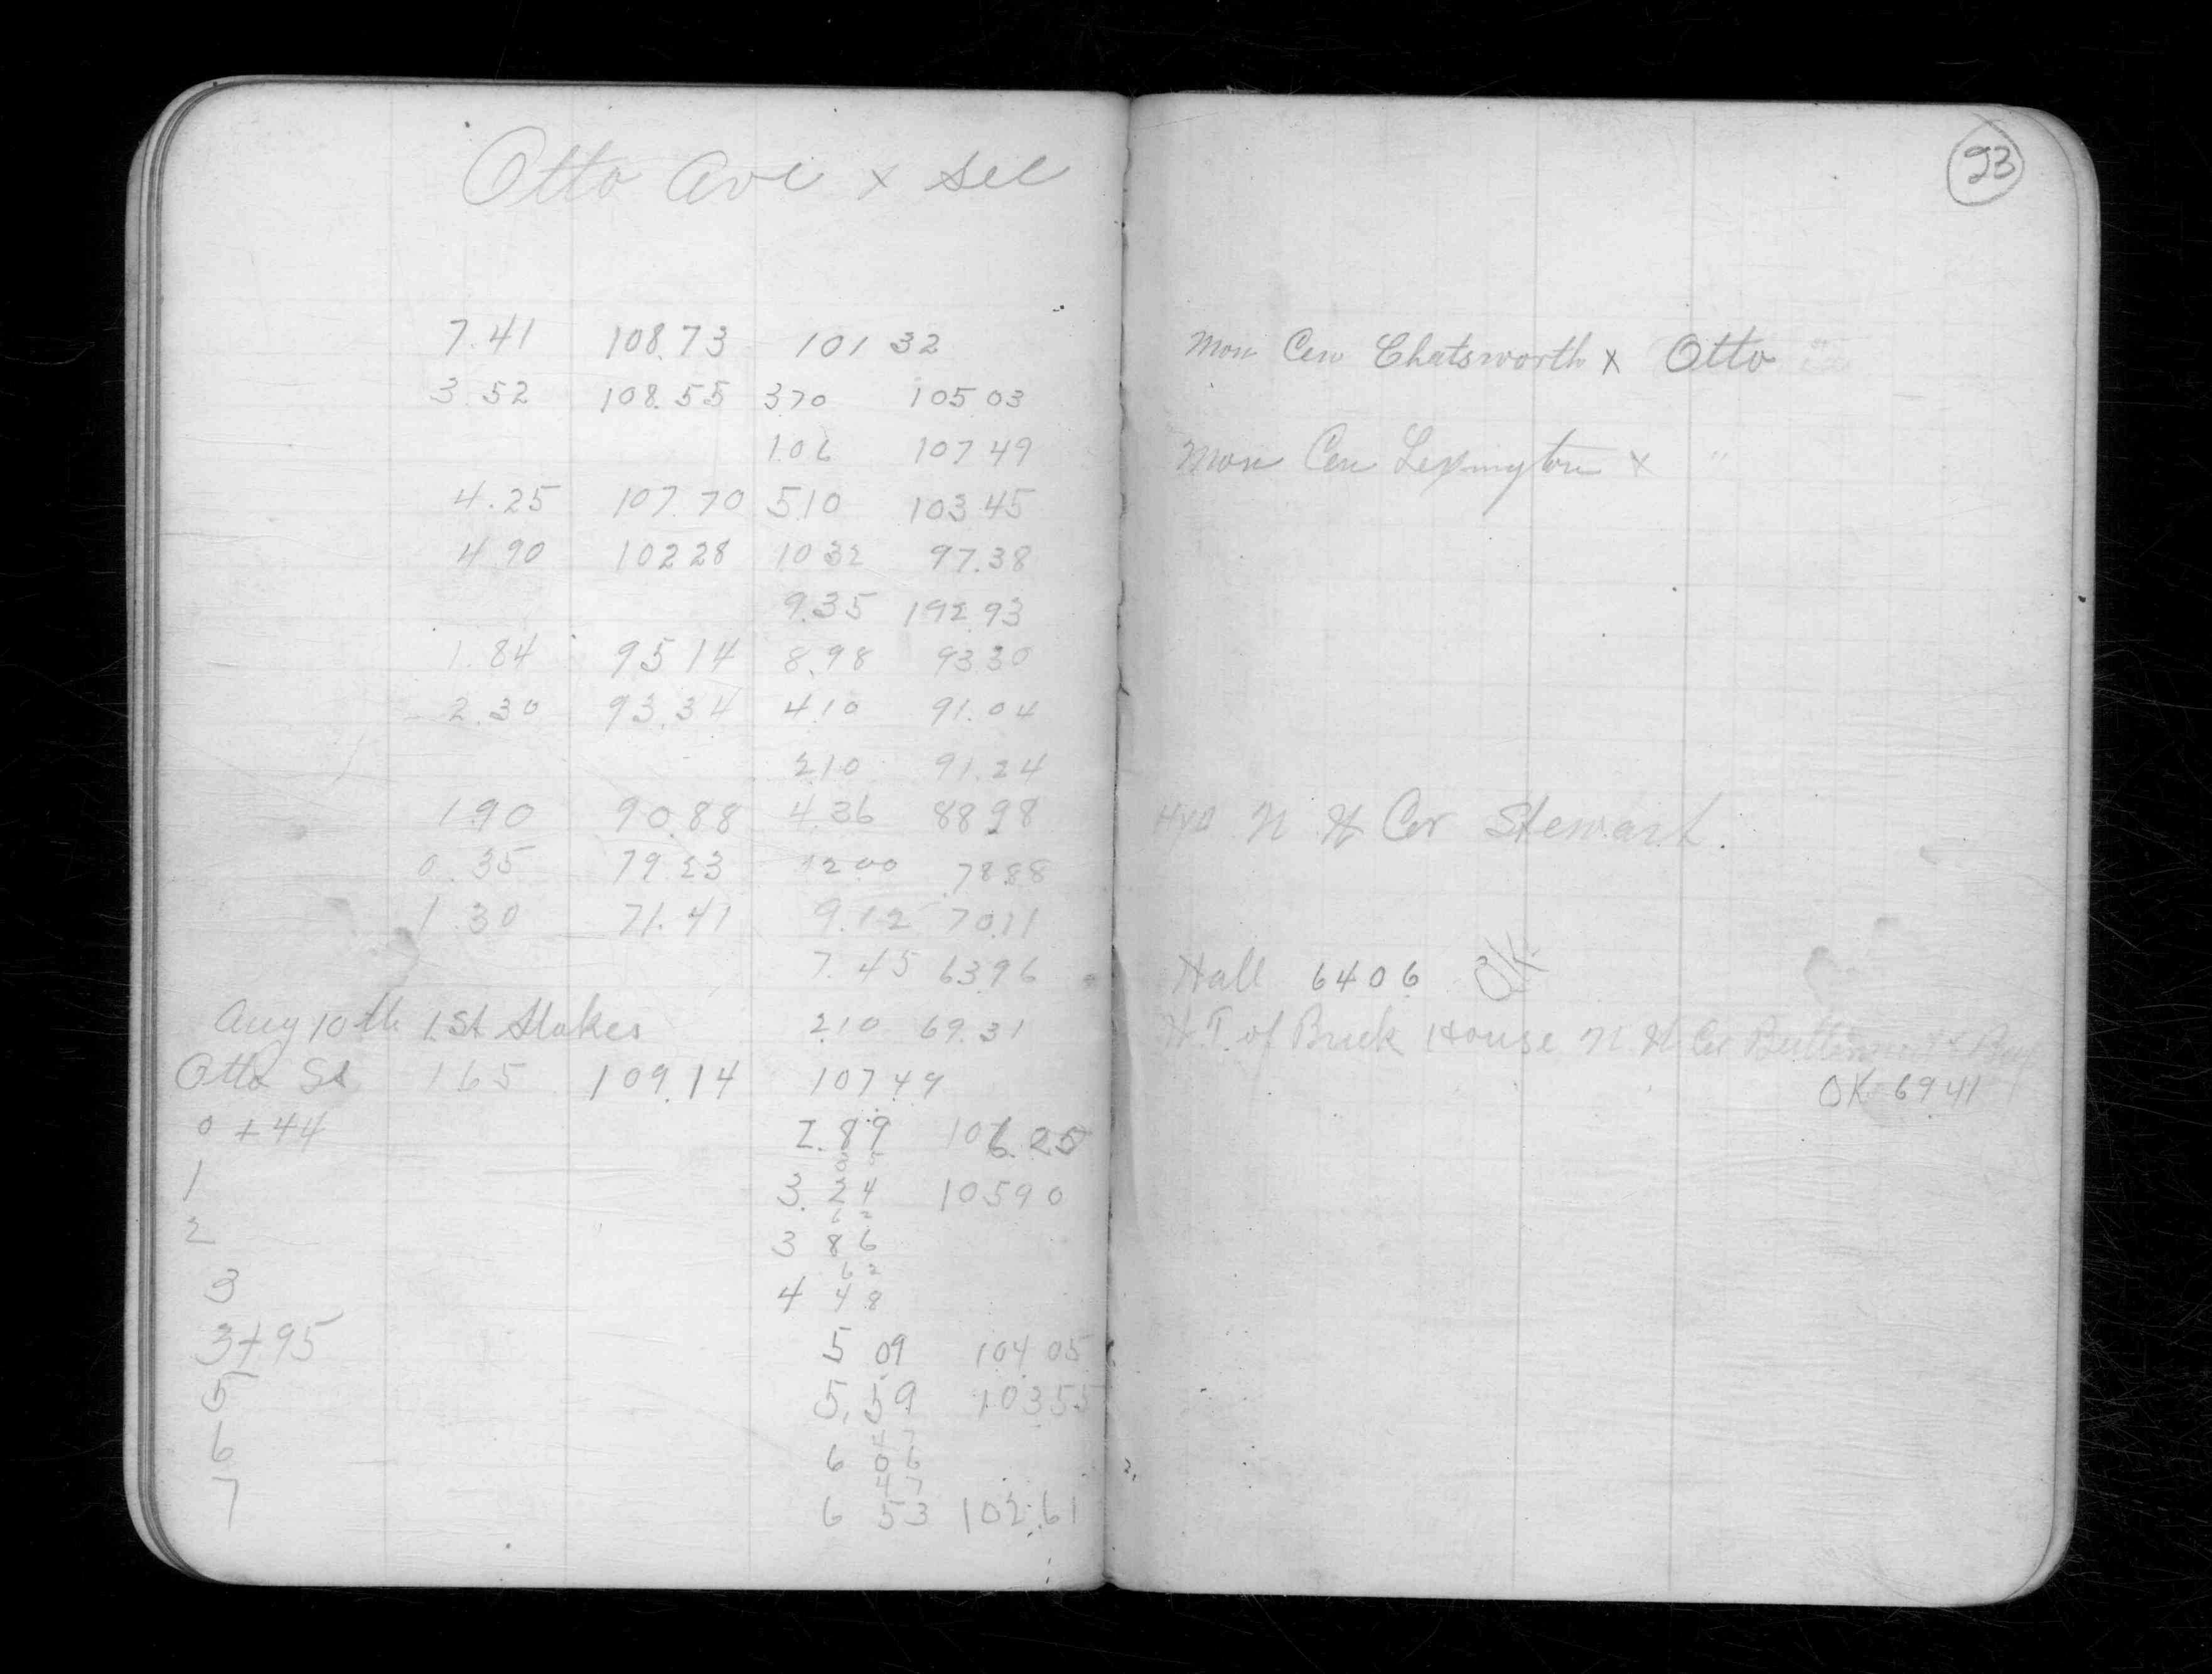 Otto Ave x Sec
7.41 108.73 101 32
3 52 108.55 370 105 03
1.06 107 49
4.25 107.70 510 103 45
4 90 102 28 10 32 97.38
9.35 192 93
1.84 95 14 8.98 93 30
2.30 93.34 4.10 91.04
210 91.24
1 90 90.88 4.36 88 98
0.35 79.23 12 00 78 88
1 30 71.41 9.12 70.11
7.45 63 96
Aug 10th 1st Stakes 210 69.31
Otto St 1 65 109.14 107 49
0 + 44 2.89 106.25
1 3. 24 105 90
6 2
2 3 86
6 2
3 4 48
3+95 5 09 104 05
5 5.59 103 55
4 7
6 6 06
4 7
7 6 53 102.61
23
Mon Cen Chatsworth x Otto
Mon Cen Lexington x "
Hyd N W Cor Stewart.
Hall 6406 OK
W.T. of Brick House N W Cor
OK 69 41